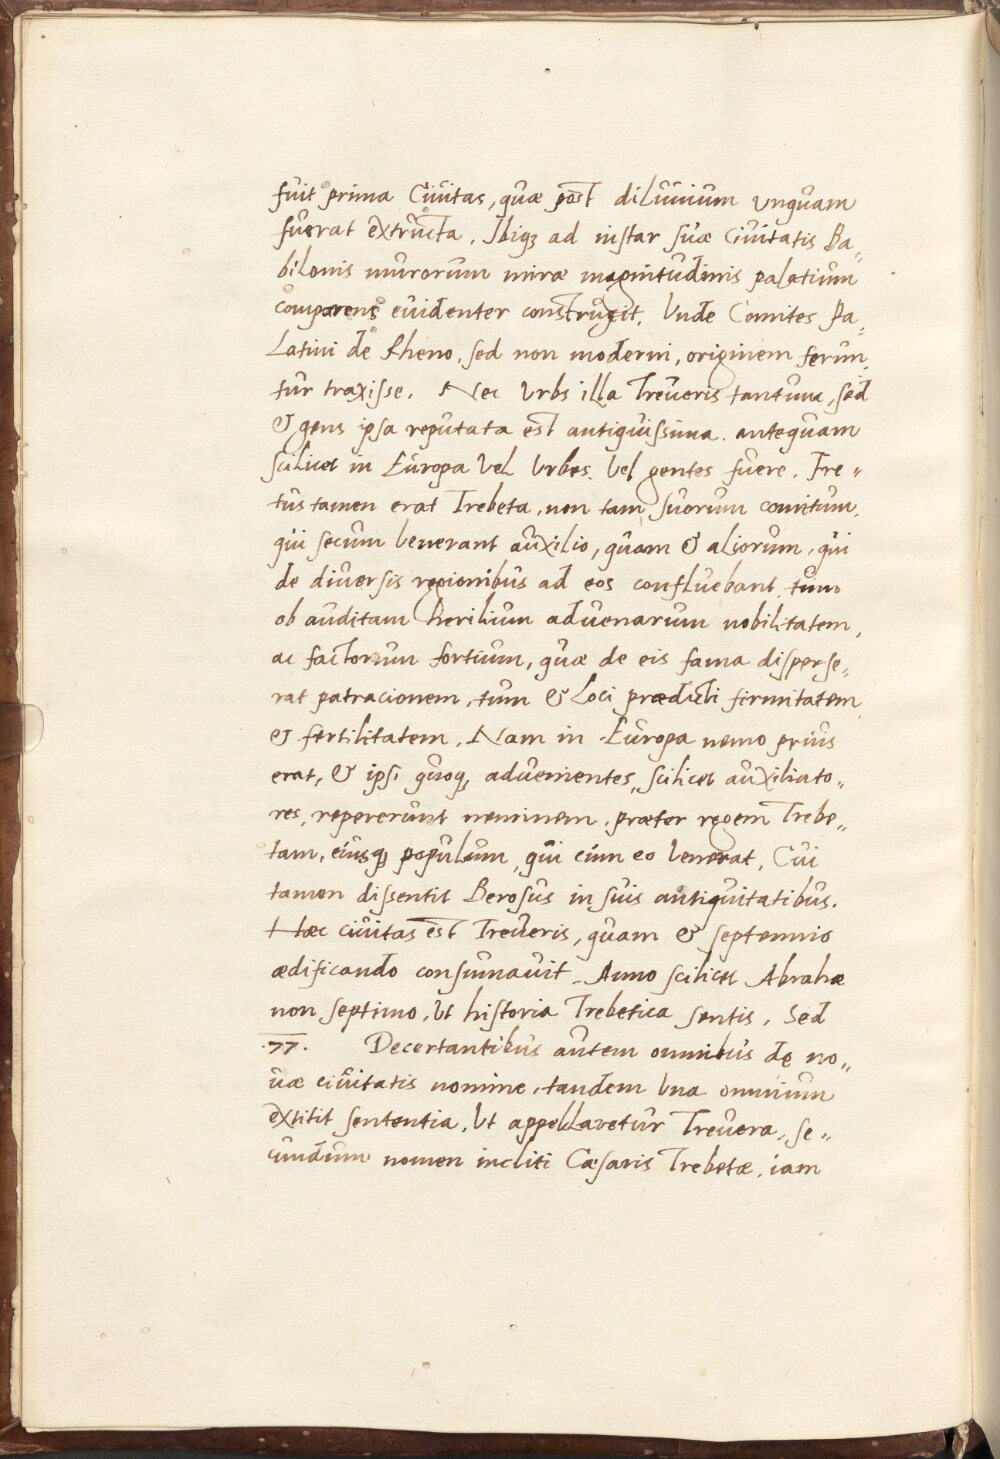 fuit prima Ciuitas, quæ post diluuium vnquam
fuerat extructa. Ibiq; ad instar suæ Ciuitatis Ba„
bilonis murorum miræ magnitudinis palatium
comparens euidenter construxit. Vnde Comites Pa„
Latini de Rheno, sed non moderni, originem ferun„
tur traxisse. Nec Vrbs illa Treueris tantum, sed
& gens ipsa reputata est antiquissima. antequam
scilicet in Europa Vel Vrbes. Vel gentes fuere. Fre„
tus tamen erat Trebeta, non tam suorum comitum,
qui secum Venerant auxilio, quam & aliorum, qui
de diuersis regionibus ad eos confluebant, tum
ob auditam herilium aduenarum nobilitatem,
ac factorum fortium, quæ de eis fama disperse„
rat patracionem, tum & Loci prædicti firmitatem
& fertilitatem. Nam in Europa nemo prius
erat, & ipsi quoq; aduenientes, scilicet auxiliato„
res, repererunt neminem. præter regem Trebe„
tam, eiusq; populum, qui cum eo Venerat. Cui
tamen dissentit Berosus in suis antiquitatibus.
Hæc ciuitas est Treueris, quam & septennio
ædificando consumauit. Anno scilicet Abrahæ
non septimo, Vt historia Trebetica sentis. Sed
.77. Decertantibus autem omnibus de no„
uæ ciuitatis nomine, tandem Vna omnium
extitit sententia, Vt appellaretur Treuera, se„
cundum nomen incliti Cæsaris Trebetæ. iam